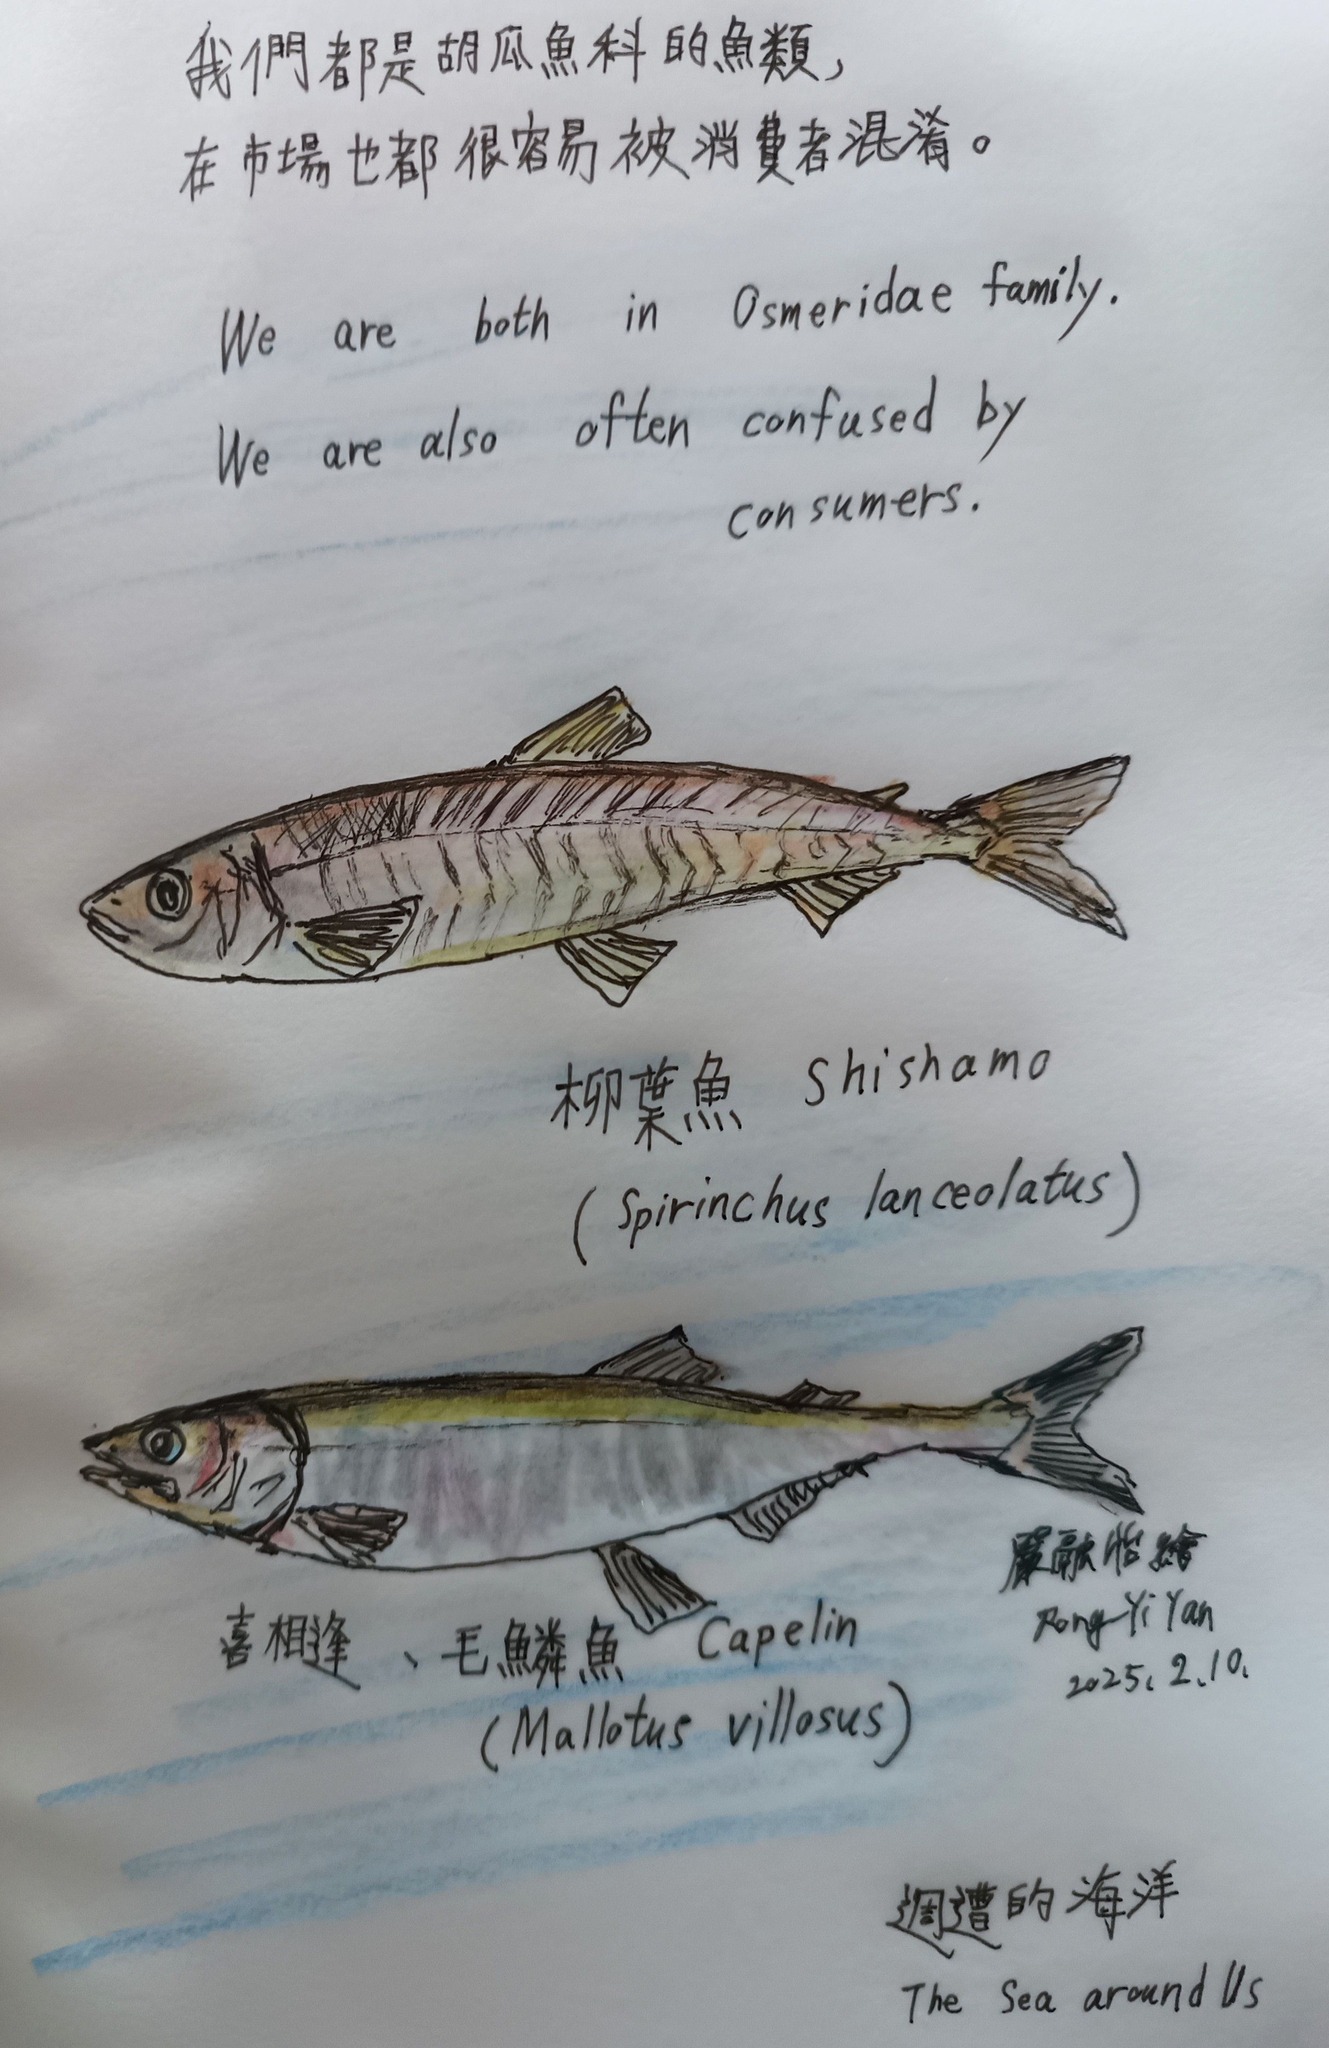 我們都是胡瓜魚科的魚類,
在市場也都很容易被消費者混淆。
We are both in Osmeridae family.
We are also often confused by
consumers.
柳葉魚 Shishamo
(Spirinchus lanceolatus)
喜相逢、毛鱗魚 Capelin
(Mallotus villosus)
嚴融怡繪
Rong-Yi Yan
2025.2.10.
週遭的海洋
The Sea around Us